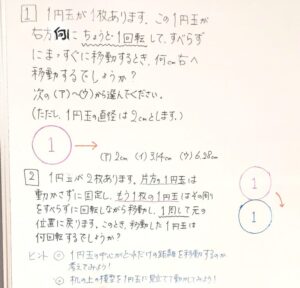 1 1円玉が1枚あります。この1円玉が
右方向にちょうど1回転して、すべらず
にまっすぐに移動するとき、何cm右へ
移動するでしょうか?
次の(ア)~(ウ)から選んでください。
(ただし、1円玉の直径は2cmとします。)
1
(ア)2cm (イ)3.14cm (ウ)6.28cm
2 1円玉が2枚あります。片方の1円玉は
動かさずに固定し、もう1枚の1円玉はその周り
をすべらずに回転しながら移動し、1周して元の
位置に戻ります。このとき、移動した1円玉は
何回転するでしょうか?
1
1
ヒント ◎ 1円玉の中心がどれだけの距離を移動するのか
考えてみよう!
◎ 机の上の模型を1円玉に見立てて動かしてみよう!